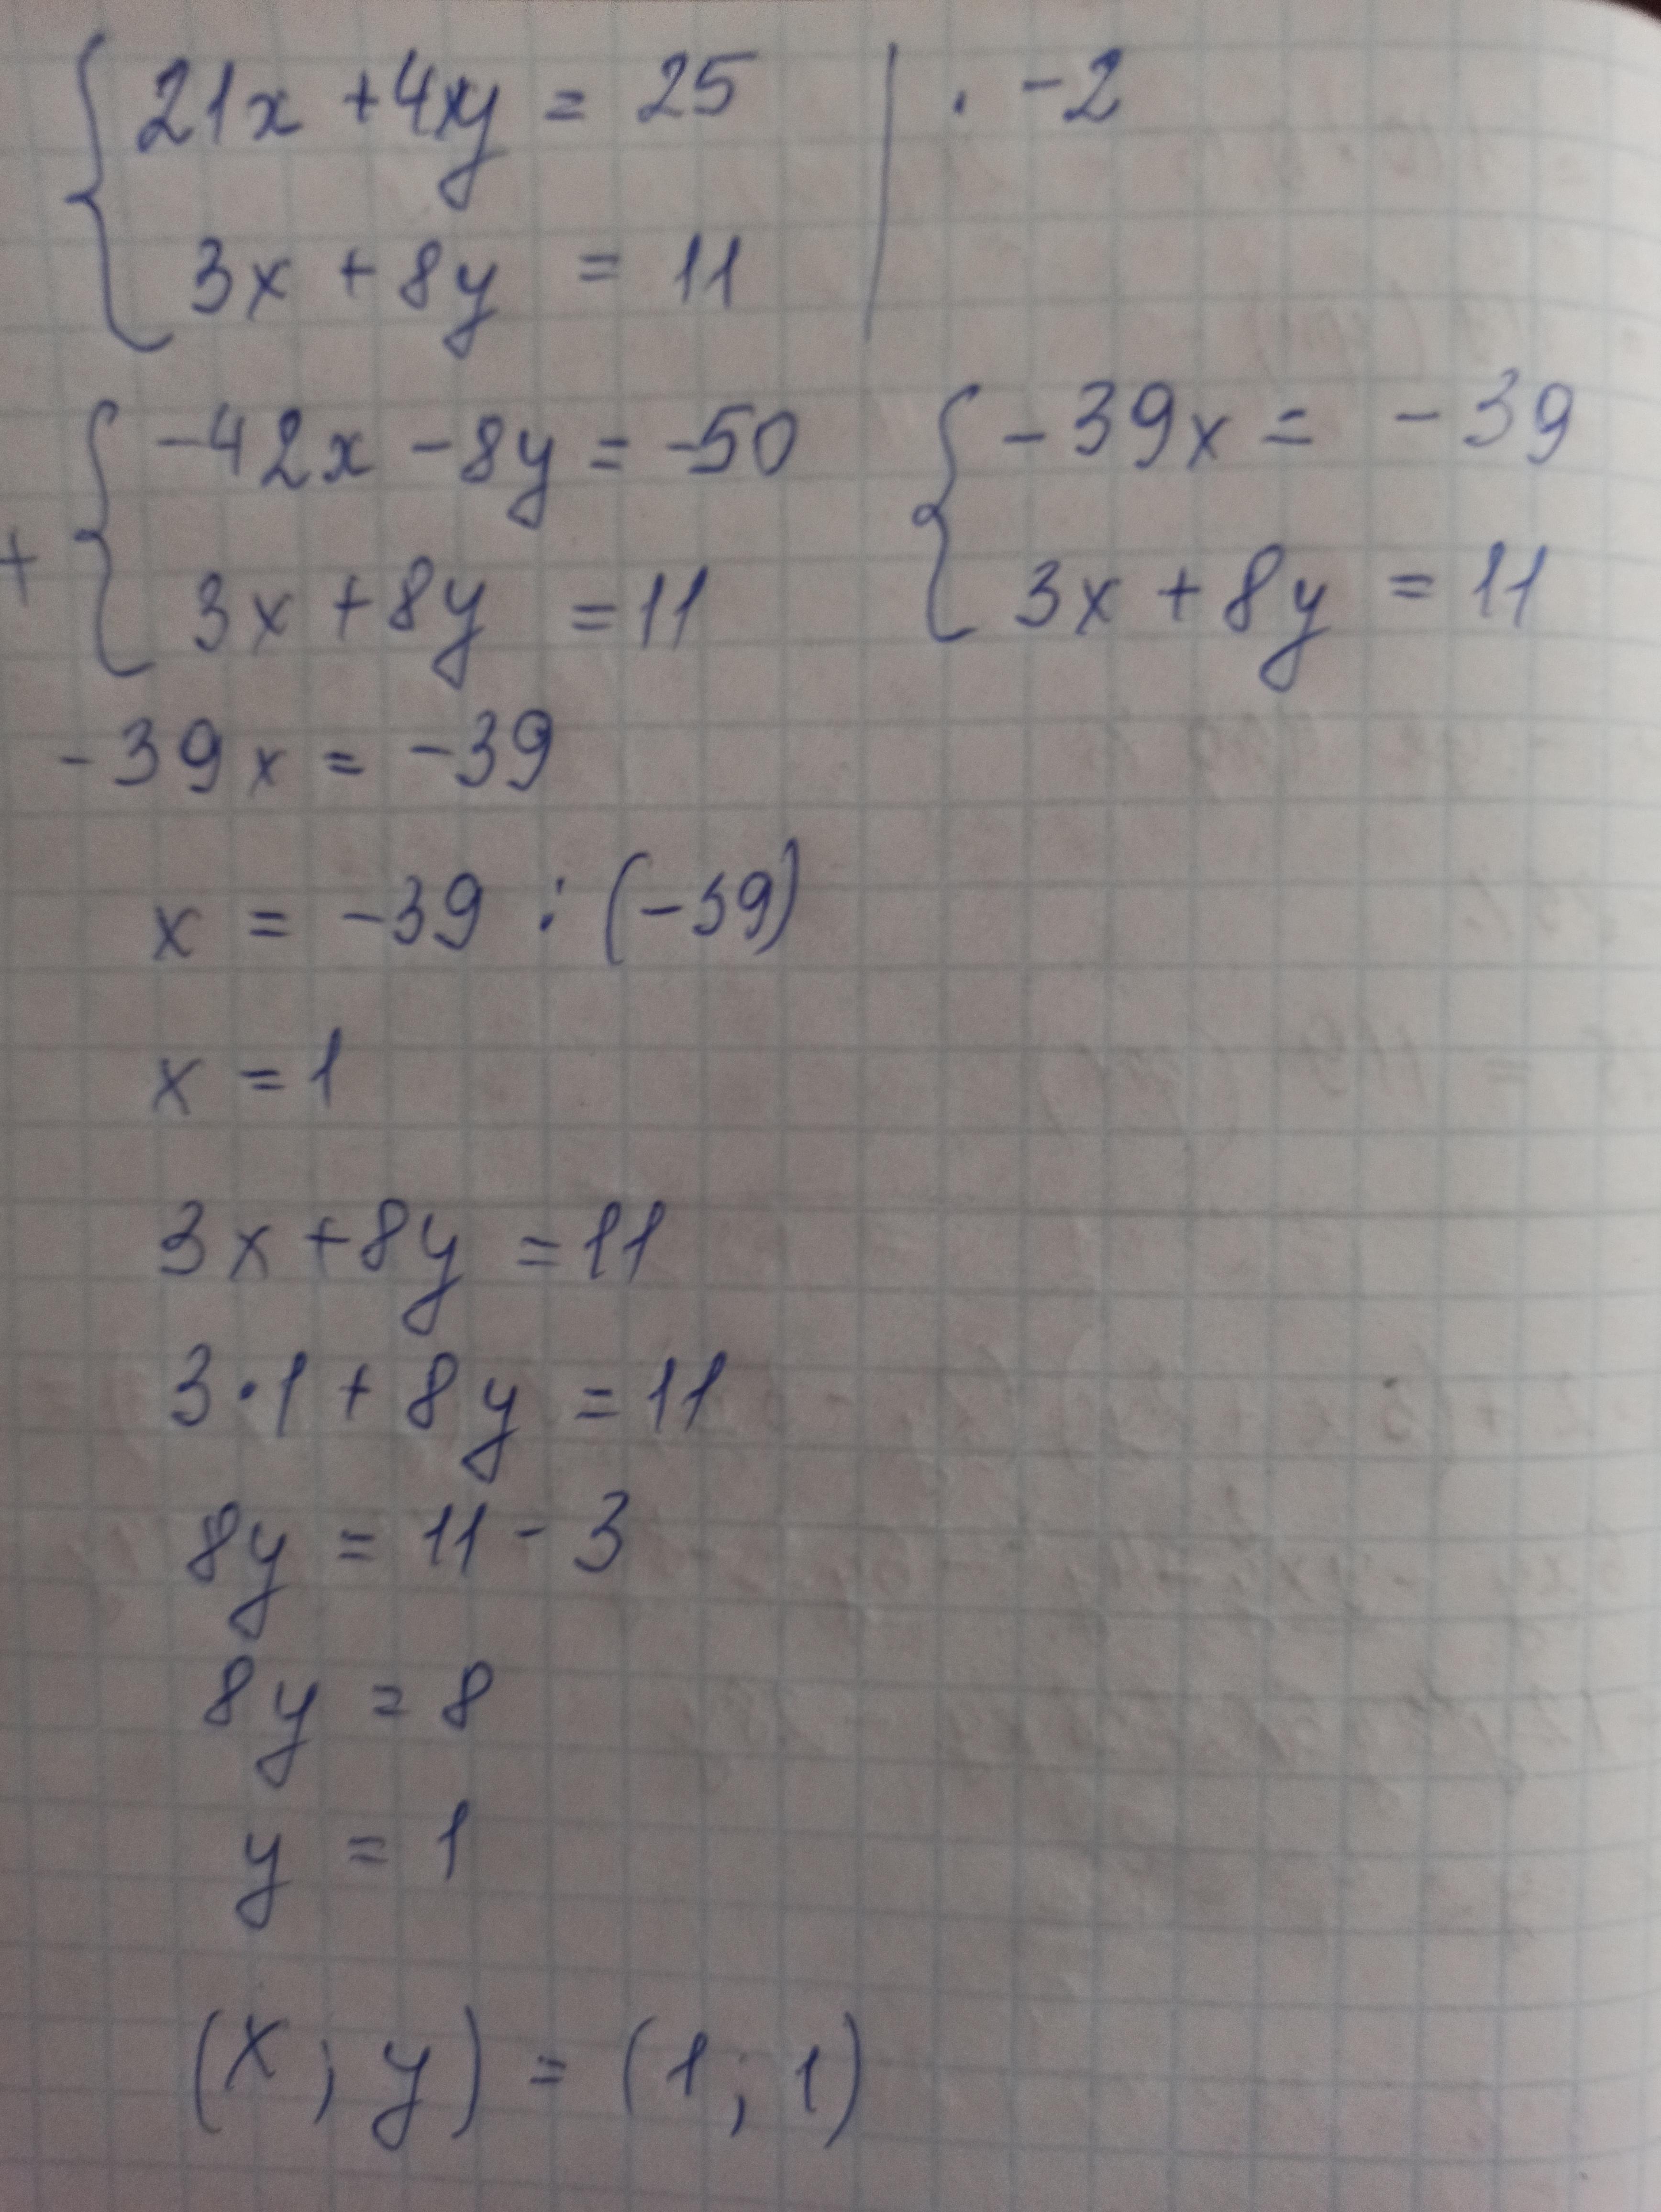 21x + 4y = 25 | · -2
3x + 8y = 11
-42x - 8y = -50
+ 3x + 8y = 11
-39x = -39
3x + 8y = 11
-39x = -39
x = -39 : (-39)
x = 1
3x + 8y = 11
3·1 + 8y = 11
8y = 11 - 3
8y = 8
y = 1
(x; y) = (1; 1)